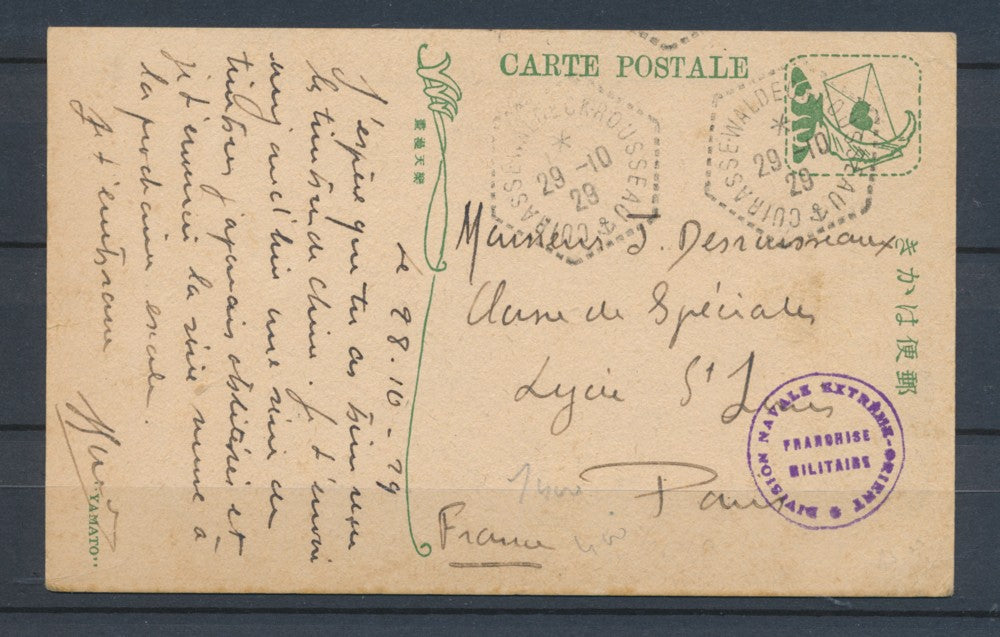 CARTE POSTALE
CUIRASSE WALDECK-ROUSSEAU
29 -10
29
CUIRASSE WALDECK-ROUSSEAU
29 -10
29
きかは便郵
Monsieur J. Desruisseaux
Classe de Spéciales
Lycée St Louis
Paris
France
DIVISION NAVALE EXTRÊME-ORIENT
FRANCHISE
MILITAIRE
Le 28.10-29
J'espère que tu as bien reçu
les timbres de chine. Je t'envoi
aujourd'hui une série de
timbres japonais oblitérés et
je t'enverrai la série neuve à
la prochaine escale.
Je t'embrasse
"YAMATO"